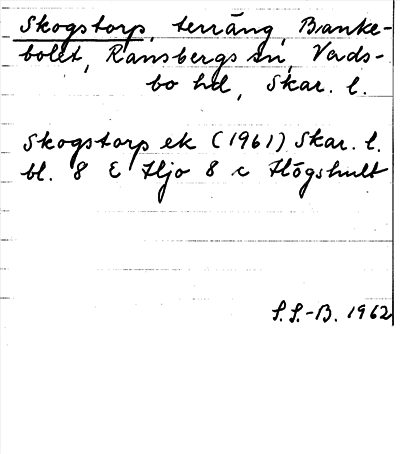 Skogstorp, terräng, Banke-
bolet, Ransbergs sn, Vads-
bo hd, Skar. l.
Skogstorp ek (1961) Skar. l.
bl. 8 E Hjo 8 c Högshult
S.S.-B. 1962